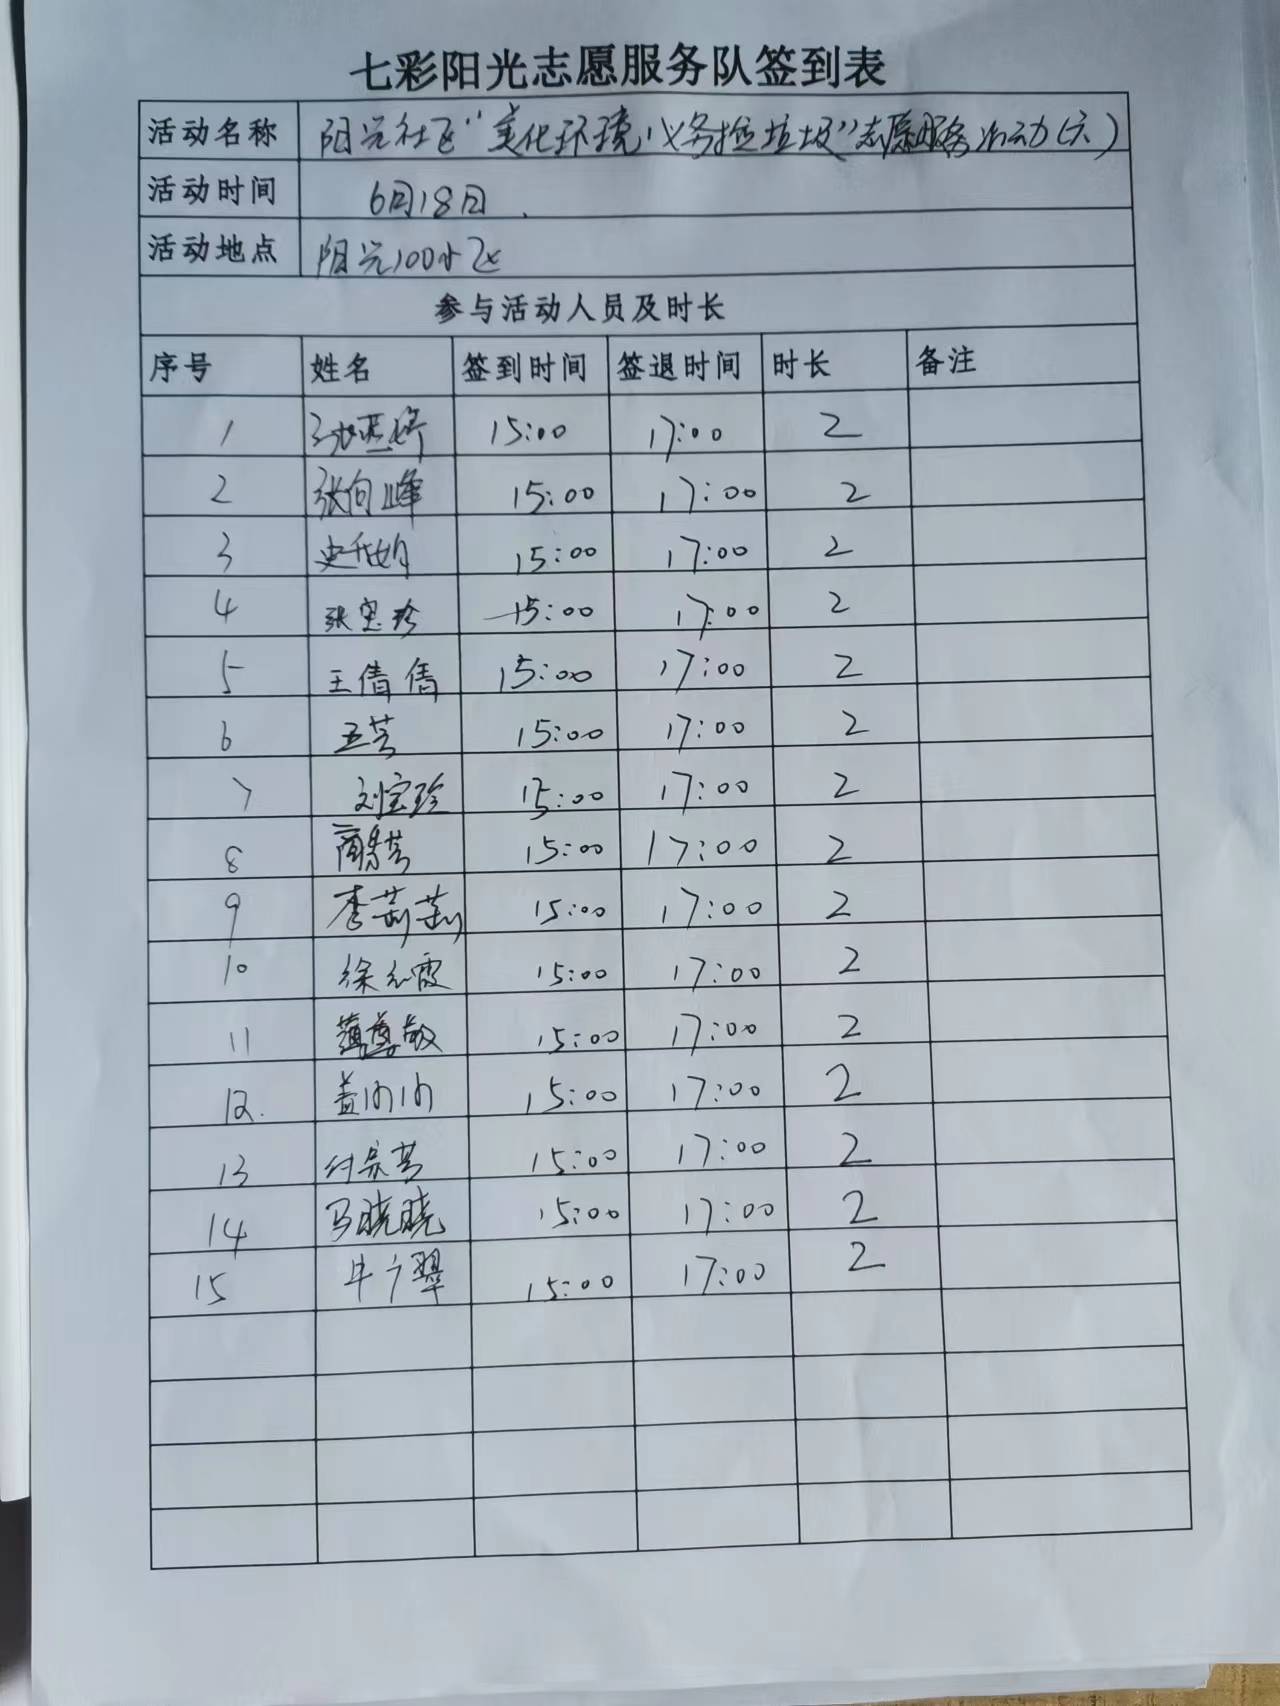 七彩阳光志愿服务队签到表
活动名称 阳光社区“美化环境，义务捡垃圾”志愿服务活动（六）
活动时间 6月18日
活动地点 阳光100小区
参与活动人员及时长
序号 姓名 签到时间 签退时间 时长 备注
1 15:00 17:00 2
2 张向峰 15:00 17:00 2
3 15:00 17:00 2
4 张宝珍 15:00 17:00 2
5 王倩倩 15:00 17:00 2
6 王芸 15:00 17:00 2
7 刘宝玲 15:00 17:00 2
8 15:00 17:00 2
9 李莉莉 15:00 17:00 2
10 徐志霞 15:00 17:00 2
11 15:00 17:00 2
12 盖帅帅 15:00 17:00 2
13 15:00 17:00 2
14 马晓晓 15:00 17:00 2
15 牛广翠 15:00 17:00 2